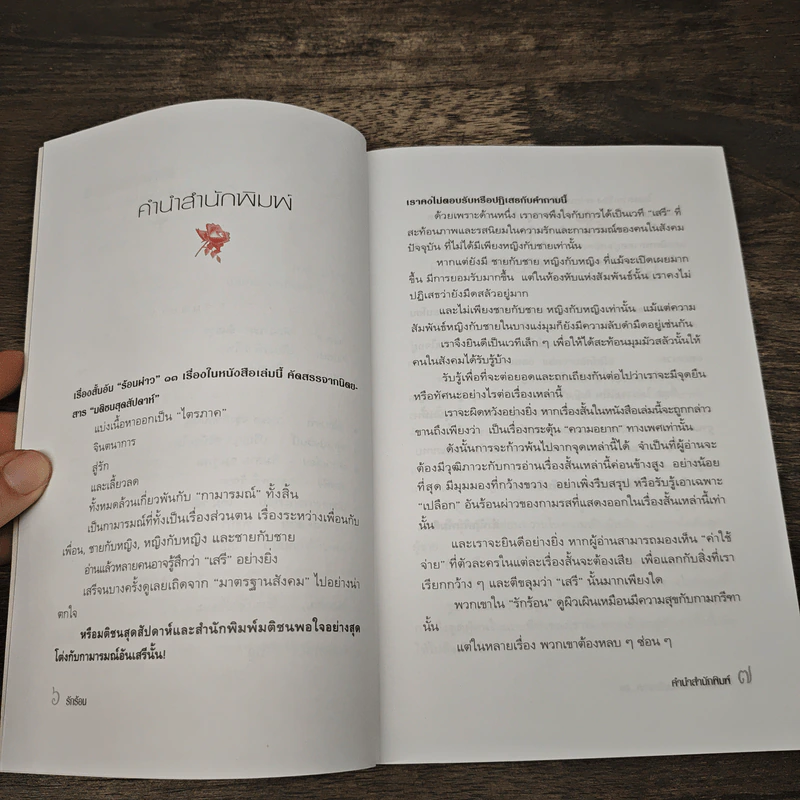 คำนำสำนักพิมพ์
เรื่องสั้นอัน "ร้อนผ่าว" ๑๓ เรื่องในหนังสือเล่มนี้ คัดสรรจากนิตย-
สาร "มติชนสุดสัปดาห์"
แบ่งเนื้อหาออกเป็น "ไตรภาค"
จินตนาการ
สู่รัก
และเลี้ยวลด
ทั้งหมดล้วนเกี่ยวพันกับ "กามารมณ์" ทั้งสิ้น
เป็นกามารมณ์ที่ทั้งเป็นเรื่องส่วนตน เรื่องระหว่างเพื่อนกับ
เพื่อน, ชายกับหญิง, หญิงกับหญิง และชายกับชาย
อ่านแล้วหลายคนอาจรู้สึกว่า "เสรี" อย่างยิ่ง
เสรีจนบางครั้งดูเลยเถิดจาก "มาตรฐานสังคม" ไปอย่างน่า
ตกใจ
หรือมติชนสุดสัปดาห์และสำนักพิมพ์มติชนพอใจอย่างสุด
โต่งกับกามารมณ์อันเสรีนั้น!
๖ รักร้อน
เราคงไม่ตอบรับหรือปฏิเสธกับคำถามนี้
ด้วยเพราะด้านหนึ่ง เราอาจพึงใจกับการได้เป็นเวที "เสรี" ที่
สะท้อนภาพและรสนิยมในความรักและกามารมณ์ของคนในสังคม
ปัจจุบัน ที่ไม่ได้มีเพียงหญิงกับชายเท่านั้น
หากแต่ยังมี ชายกับชาย หญิงกับหญิง ที่แม้จะเปิดเผยมาก
ขึ้น มีการยอมรับมากขึ้น แต่ในห้องหับแห่งสัมพันธ์นั้น เราคงไม่
ปฏิเสธว่ายังมืดสลัวอยู่มาก
และไม่เพียงชายกับชาย หญิงกับหญิงเท่านั้น แม้แต่ความ
สัมพันธ์หญิงกับชายในบางแง่มุมก็ยังมีความลับดำมืดอยู่เช่นกัน
เราจึงยินดีเป็นเวทีเล็ก ๆ เพื่อให้ได้สะท้อนมุมมัวสลัวนั้นให้
คนในสังคมได้รับรู้บ้าง
รับรู้เพื่อที่จะต่อยอดและถกเถียงกันต่อไปว่าเราจะมีจุดยืน
หรือทัศนะอย่างไรต่อเรื่องเหล่านี้
เราจะผิดหวังอย่างยิ่ง หากเรื่องสั้นในหนังสือเล่มนี้จะถูกกล่าว
ขานถึงเพียงว่า เป็นเรื่องกระตุ้น "ความอยาก" ทางเพศเท่านั้น
ดังนั้นการจะก้าวพ้นไปจากจุดเหล่านี้ได้ จำเป็นที่ผู้อ่านจะ
ต้องมีวุฒิภาวะกับการอ่านเรื่องสั้นเหล่านี้ค่อนข้างสูง อย่างน้อย
ที่สุด มีมุมมองที่กว้างขวาง อย่าเพิ่งรีบสรุป หรือรับรู้เอาเฉพาะ
"เปลือก" อันร้อนผ่าวของกามรสที่แสดงออกในเรื่องสั้นเหล่านี้เท่า
นั้น
และเราจะยินดีอย่างยิ่ง หากผู้อ่านสามารถมองเห็น "ค่าใช้
จ่าย" ที่ตัวละครในแต่ละเรื่องสั้นจะต้องเสีย เพื่อแลกกับสิ่งที่เรา
เรียกกว้าง ๆ และตีขลุมว่า "เสรี" นั้นมากเพียงใด
พวกเขาใน "รักร้อน" ดูผิวเผินเหมือนมีความสุขกับกามกรีฑา
นั้น
แต่ในหลายเรื่อง พวกเขาต้องหลบ ๆ ซ่อน ๆ
คำนำสำนักพิมพ์ ๗